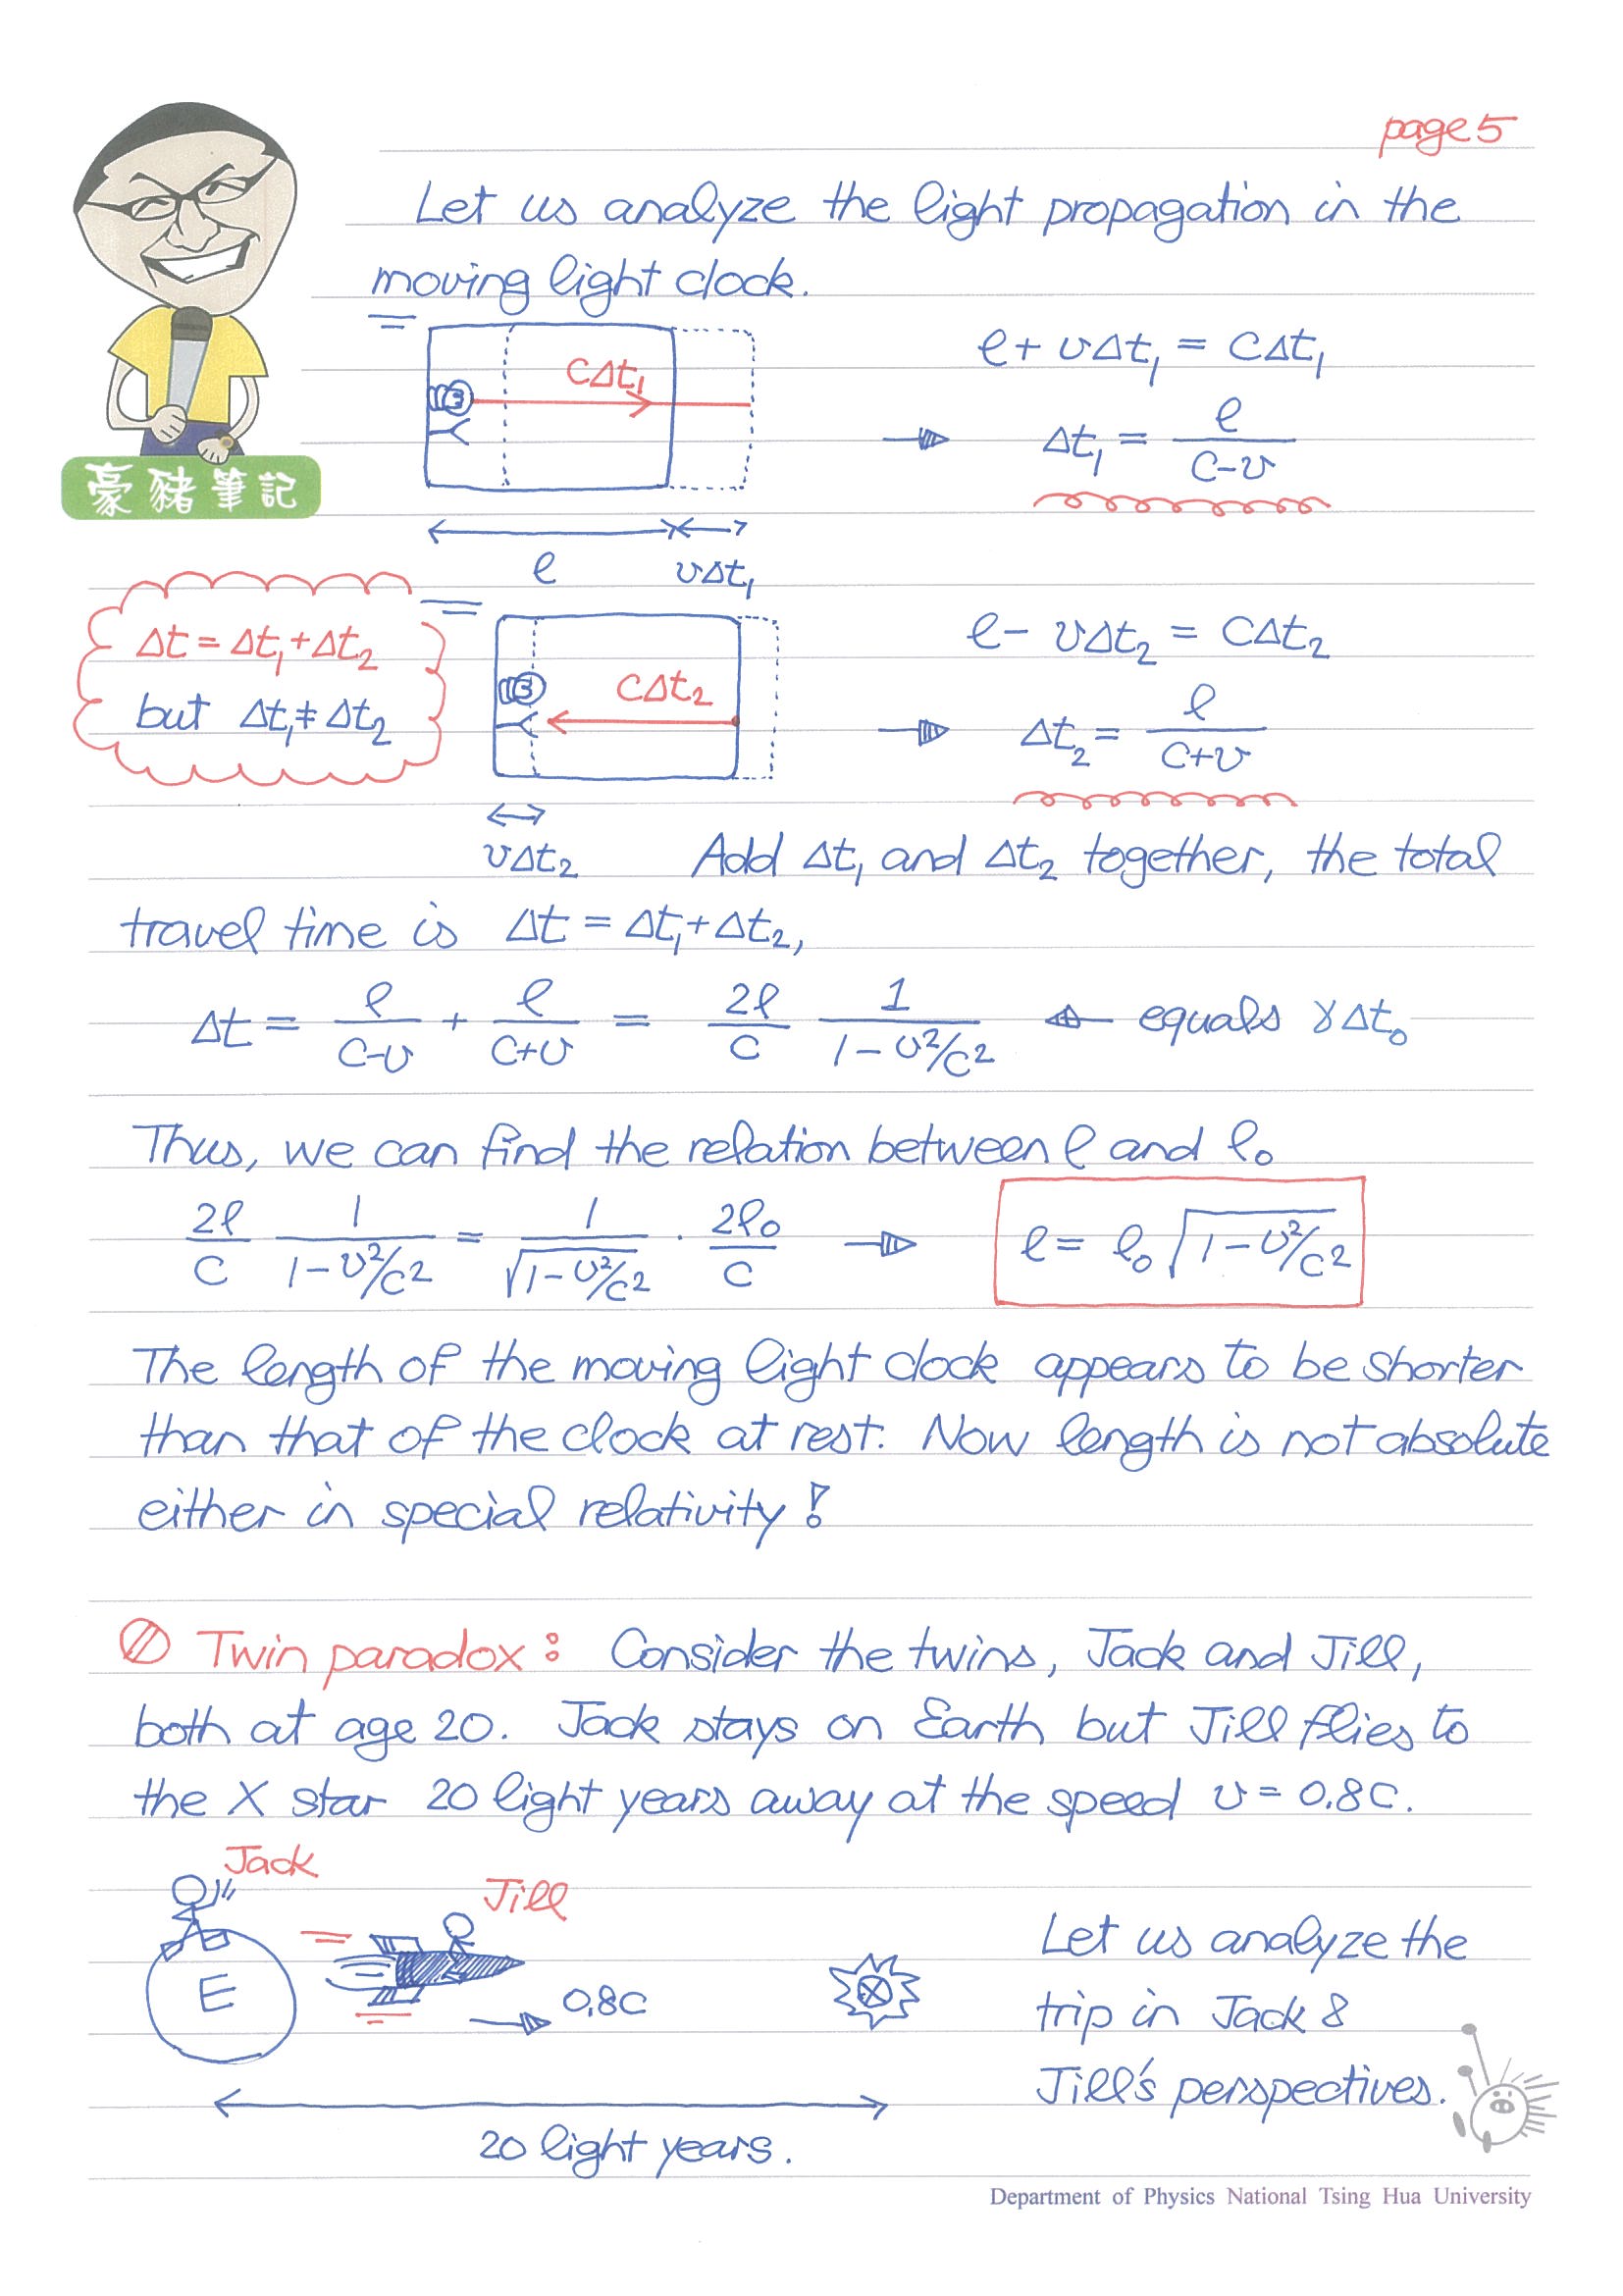 page 5
Let us analyze the light propagation in the
moving light clock.
cΔt₁
ℓ + vΔt₁ = cΔt₁
Δt₁ = ℓ/(c-v)
豪豬筆記
ℓ vΔt₁
Δt = Δt₁+Δt₂
but Δt₁≠Δt₂
cΔt₂
ℓ - vΔt₂ = cΔt₂
Δt₂ = ℓ/(c+v)
vΔt₂
Add Δt₁ and Δt₂ together, the total
travel time is Δt = Δt₁+Δt₂,
Δt = ℓ/(c-v) + ℓ/(c+v) = 2ℓ/c 1/(1-v²/c²) ← equals γΔt₀
Thus, we can find the relation between ℓ and ℓ₀
2ℓ/c 1/(1-v²/c²) = 1/√(1-v²/c²) · 2ℓ₀/c → ℓ = ℓ₀√(1-v²/c²)
The length of the moving light clock appears to be shorter
than that of the clock at rest. Now length is not absolute
either in special relativity!
Twin paradox: Consider the twins, Jack and Jill,
both at age 20. Jack stays on Earth but Jill flies to
the X star 20 light years away at the speed v = 0.8c.
Jack
Jill
E
0.8c
X
20 light years.
Let us analyze the
trip in Jack &
Jill's perspectives.
Department of Physics National Tsing Hua University